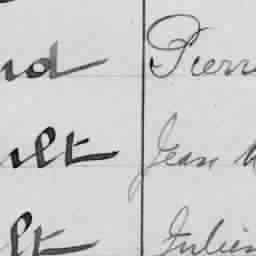 nd Pierre
ult Jean M
lt Julien